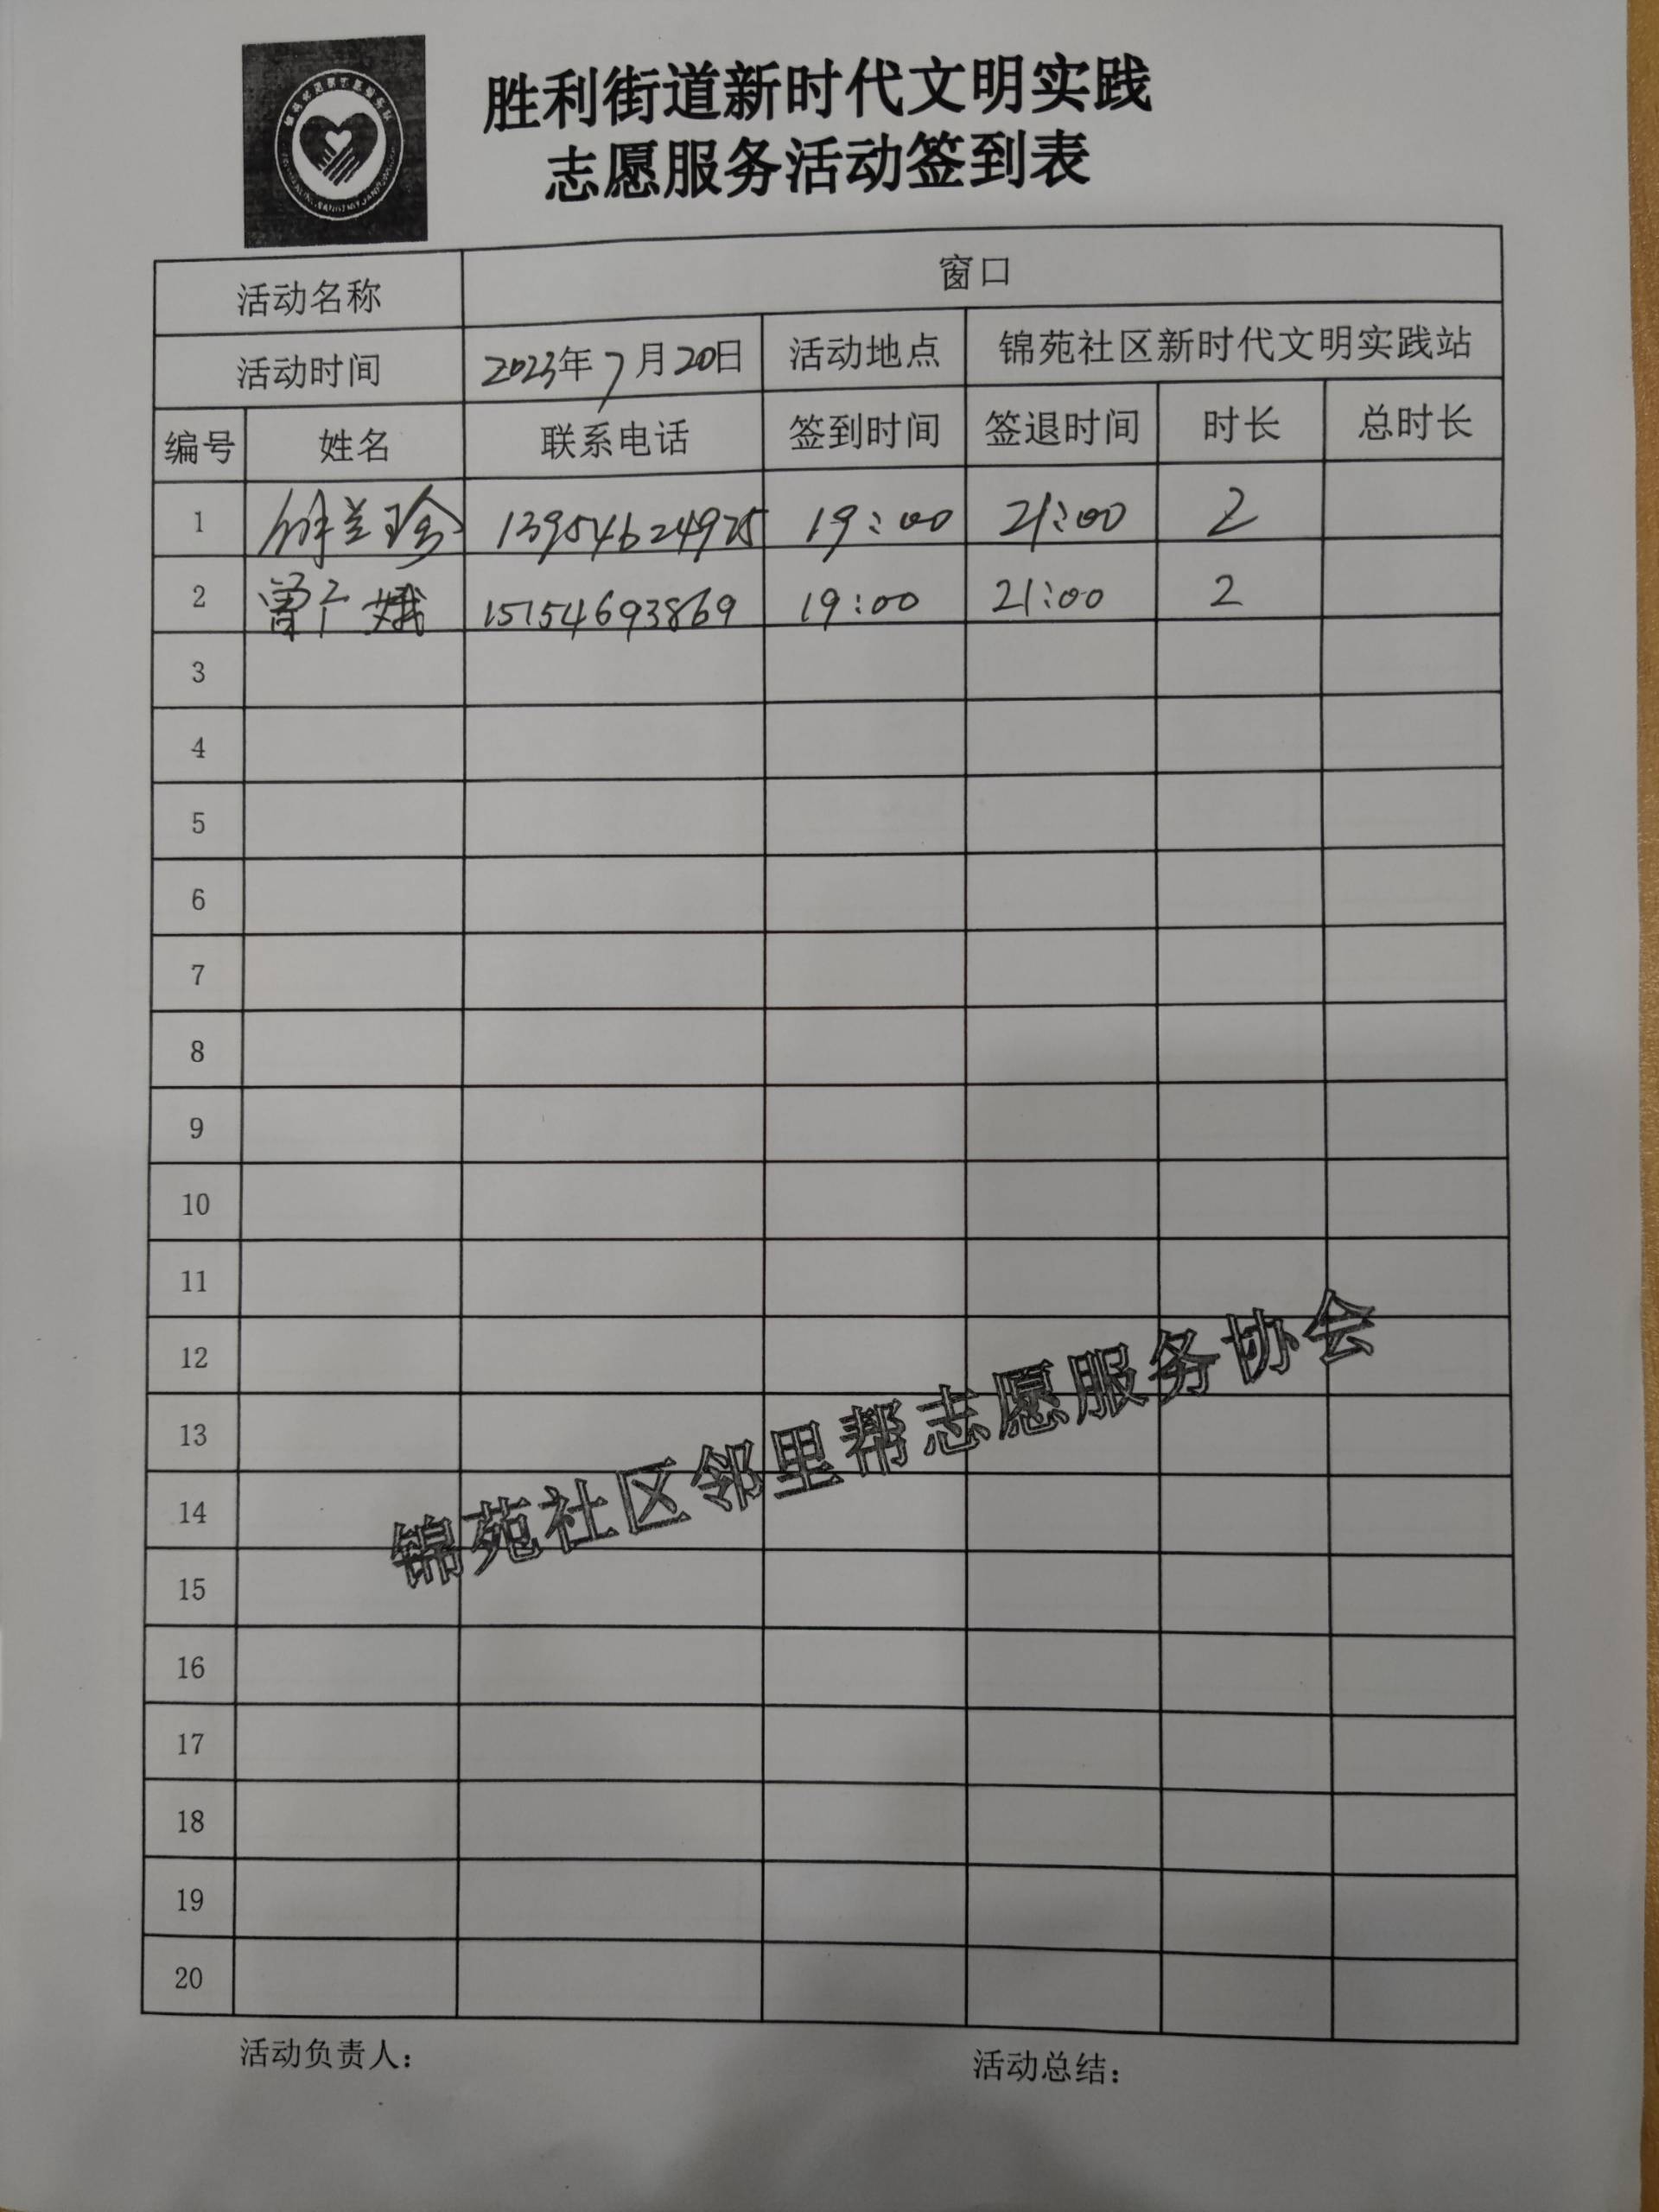 胜利街道新时代文明实践
志愿服务活动签到表
活动名称 窗口
活动时间 2023年7月20日 活动地点 锦苑社区新时代文明实践站
编号 姓名 联系电话 签到时间 签退时间 时长 总时长
1 兰珍 13954624975 19:00 21:00 2
2 曾 娥 15154693869 19:00 21:00 2
3
4
5
6
7
8
9
10
11
12
13
14
15
16
17
18
19
20
锦苑社区邻里帮志愿服务协会
活动负责人： 活动总结：